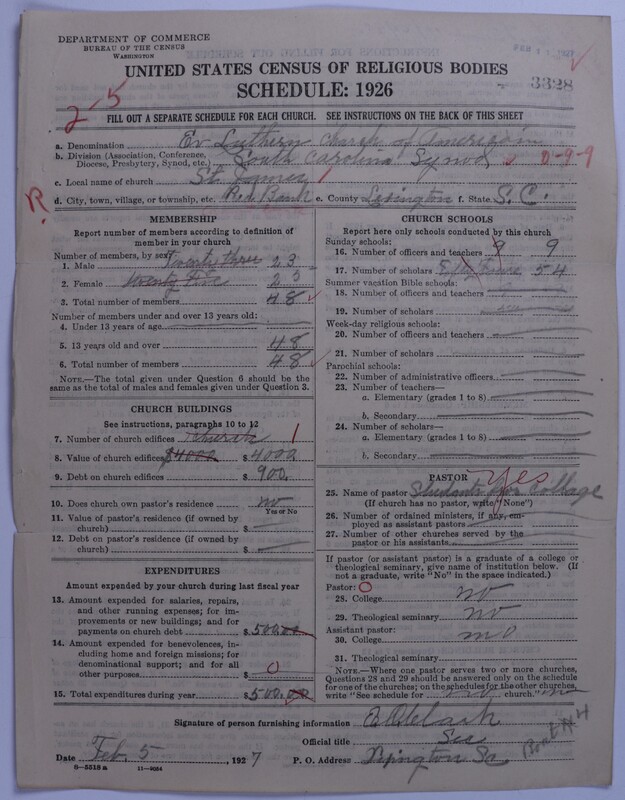 DEPARTMENT OF COMMERCE
BUREAU OF THE CENSUS
WASHINGTON
UNITED STATES CENSUS OF RELIGIOUS BODIES
SCHEDULE: 1926
3328
2-5
FILL OUT A SEPARATE SCHEDULE FOR EACH CHURCH. SEE INSTRUCTIONS ON THE BACK OF THIS SHEET
a. Denomination Ev Luthern Church of America in
b. Division (Association, Conference, Diocese, Presbytery, Synod, etc.) South Carolina Synod 0-9-9
c. Local name of church St. James
R.
d. City, town, village, or township, etc. Red Bank e. County Lexington f. State S. C.
MEMBERSHIP
Report number of members according to definition of member in your church
Number of members, by sex:
1. Male Twenty three 23
2. Female Twenty five 25
3. Total number of members 48
Number of members under and over 13 years old:
4. Under 13 years of age
5. 13 years old and over 48
6. Total number of members 48
NOTE.—The total given under Question 6 should be the same as the total of males and females given under Question 3.
CHURCH BUILDINGS
See instructions, paragraphs 10 to 12
7. Number of church edifices church 1
8. Value of church edifices $4000 $ 4000
9. Debt on church edifices $ 900.
10. Does church own pastor's residence no
Yes or No
11. Value of pastor's residence (if owned by church) $
12. Debt on pastor's residence (if owned by church) $
EXPENDITURES
Amount expended by your church during last fiscal year
13. Amount expended for salaries, repairs, and other running expenses; for improvements or new buildings; and for payments on church debt $ 500.00
14. Amount expended for benevolences, including home and foreign missions; for denominational support; and for all other purposes $ 0
15. Total expenditures during year $ 500.00
CHURCH SCHOOLS
Report here only schools conducted by this church
Sunday schools:
16. Number of officers and teachers 9 9
17. Number of scholars 54
Summer vacation Bible schools:
18. Number of officers and teachers
19. Number of scholars
Week-day religious schools:
20. Number of officers and teachers
21. Number of scholars
Parochial schools:
22. Number of administrative officers
23. Number of teachers—
a. Elementary (grades 1 to 8)
b. Secondary
24. Number of scholars—
a. Elementary (grades 1 to 8)
b. Secondary
PASTOR
yes
25. Name of pastor Students from Collage
(If church has no pastor, write "None")
26. Number of ordained ministers, if any, employed as assistant pastors
27. Number of other churches served by the pastor or his assistants
If pastor (or assistant pastor) is a graduate of a college or theological seminary, give name of institution below. (If not a graduate, write "No" in the space indicated.)
Pastor: O
28. College no
29. Theological seminary no
Assistant pastor:
30. College no
31. Theological seminary
NOTE.—Where one pastor serves two or more churches, Questions 28 and 29 should be answered only on the schedule for one of the churches; on the schedules for the other churches, write "See schedule for church."
Signature of person furnishing information Clark
Official title Sec
Date Feb. 5, 1927 P. O. Address Lexington SC
8-5518 a 11-9024